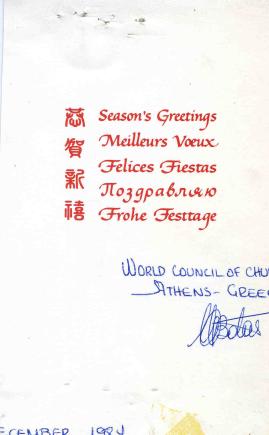 恭賀新禧
Season's Greetings
Meilleurs Vœux
Felices Fiestas
Поздравляю
Frohe Festtage
WORLD COUNCIL OF CHU
ATHENS - GREE
ECEMBER 1984